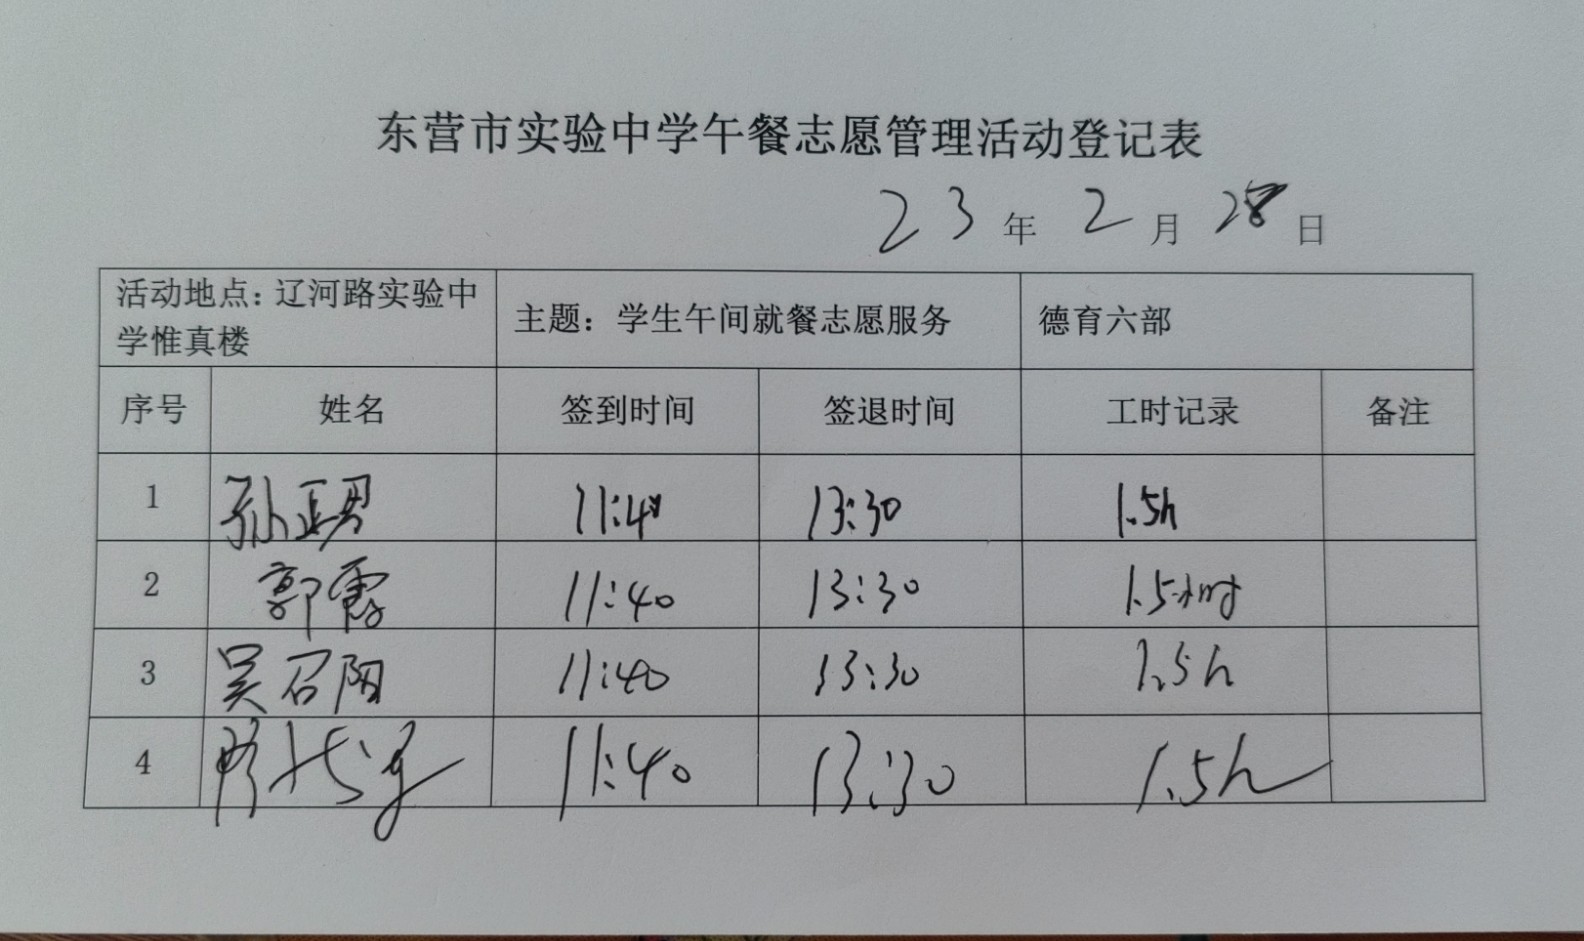 东营市实验中学午餐志愿管理活动登记表
23年2月28日
活动地点：辽河路实验中
学惟真楼
主题：学生午间就餐志愿服务
德育六部
序号 姓名 签到时间 签退时间 工时记录 备注
1 孙 11:4 13:30 1.5h
2 郭霞 11:40 13:30 1.5小时
3 吴召阳 11:40 13:30 1.5h
4 11:40 13:30 1.5h